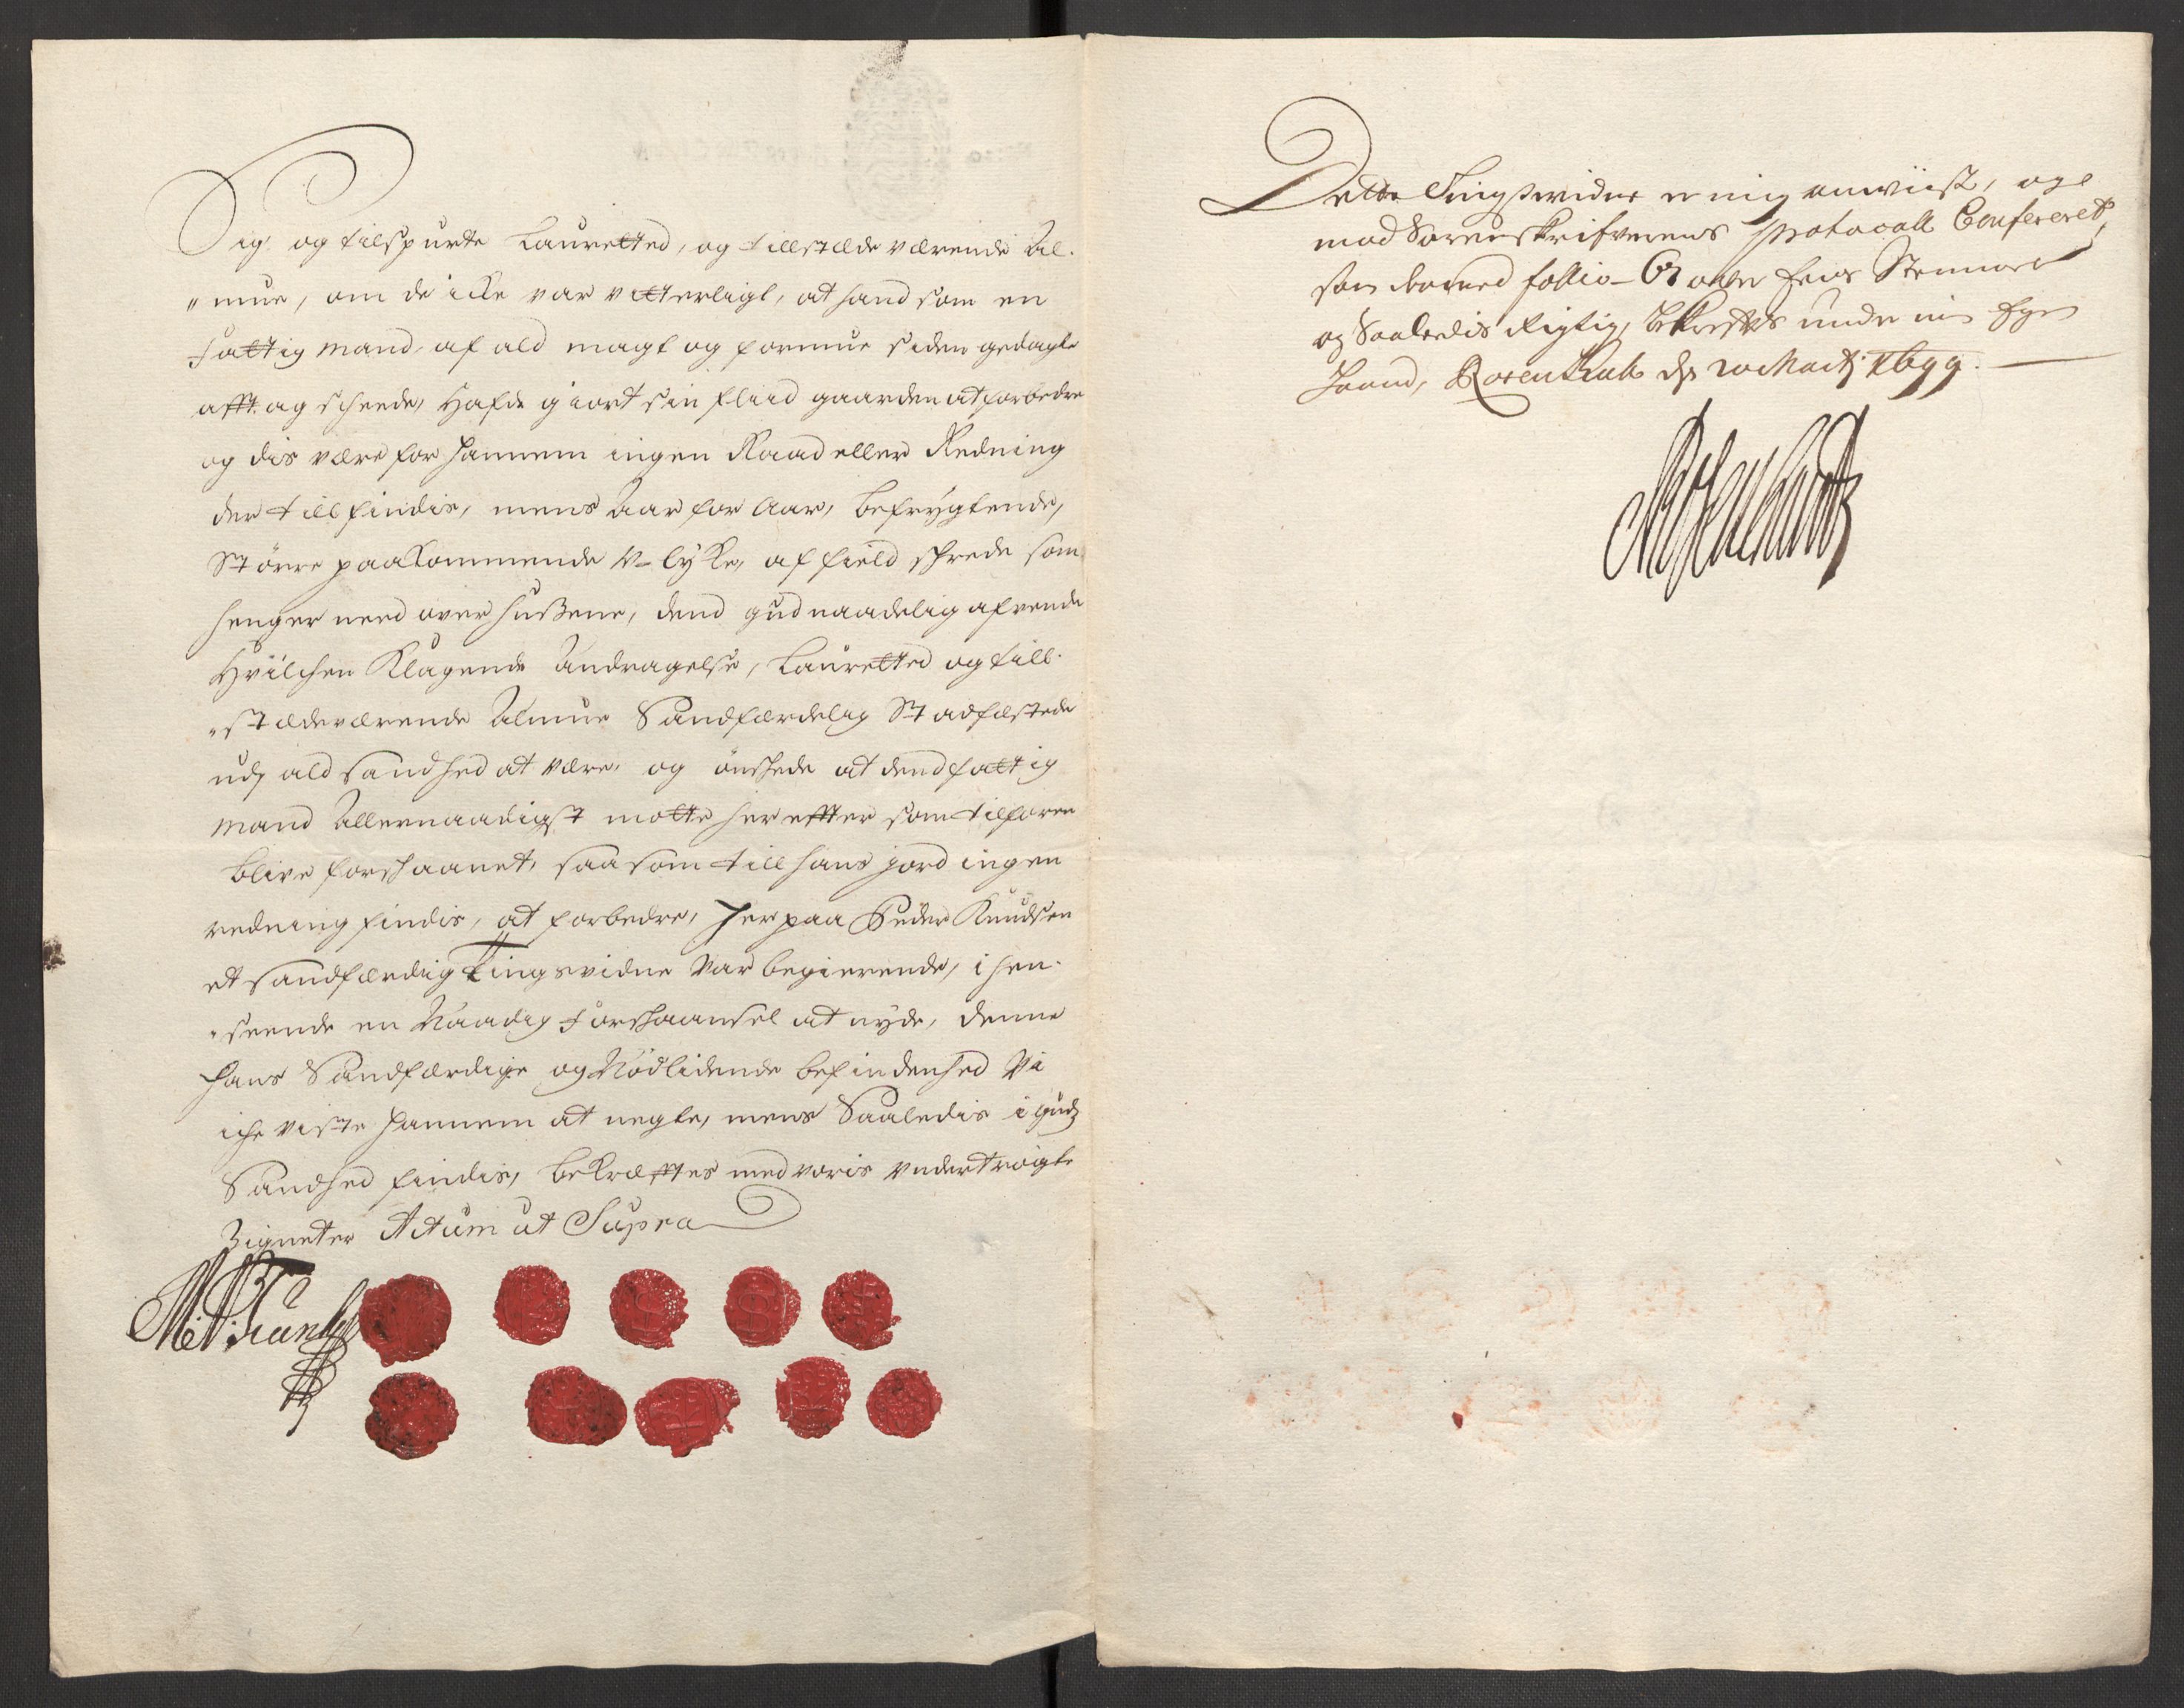 Sig og tilspurte Lauretted, og tillstæde værende Al-
"mue, om de icke var vitterligt, at hand som en
fattig mand, af ald magt og formue siden gedagte
afft. ag scheede, Hafde giort sin fliid gaarden at forbedre
og dis være for hannem ingen Raad eller Redning
der till findis, mens Aar for Aar, befrygtende,
Større paakommende U-lycke, af field schrede som
henger need over hußene, dend gud naadelig afvende
Hvilchen Klagende Andragelse, Lauretted og till-
"stædeværende Almue Sandfærdelig Stadfæstede
udj ald sandhed at være, og ønschede at dend fattig
mand Allernaadigst motte her effter som tilforen
blive forschaanet, saa som till hans jord ingen
redning findis, at forbedre, her paa Peder Knudsen
et sandfærdig Tingsvidne var begierende, i hen-
"seende en Naadig forschaansel at nyde, denne
hans Sandfærdige og Nødlidende befindenhed Vi
iche viste hannem at negte, mens Saaledis i guds
Sandhed findis, bekræfftes med voris undertrögte
Zigneter Actum ut Supra
Dette Tingsvidne er mig anviist, og
mod Sorenskrifverens Protocoll Confereret,
som dermed follio - 67 over Eens Stemmer
og Saaledis Rigtig, bekrefftes under min Egen
Haand, Rosendahl dj 20 Martj 1699.